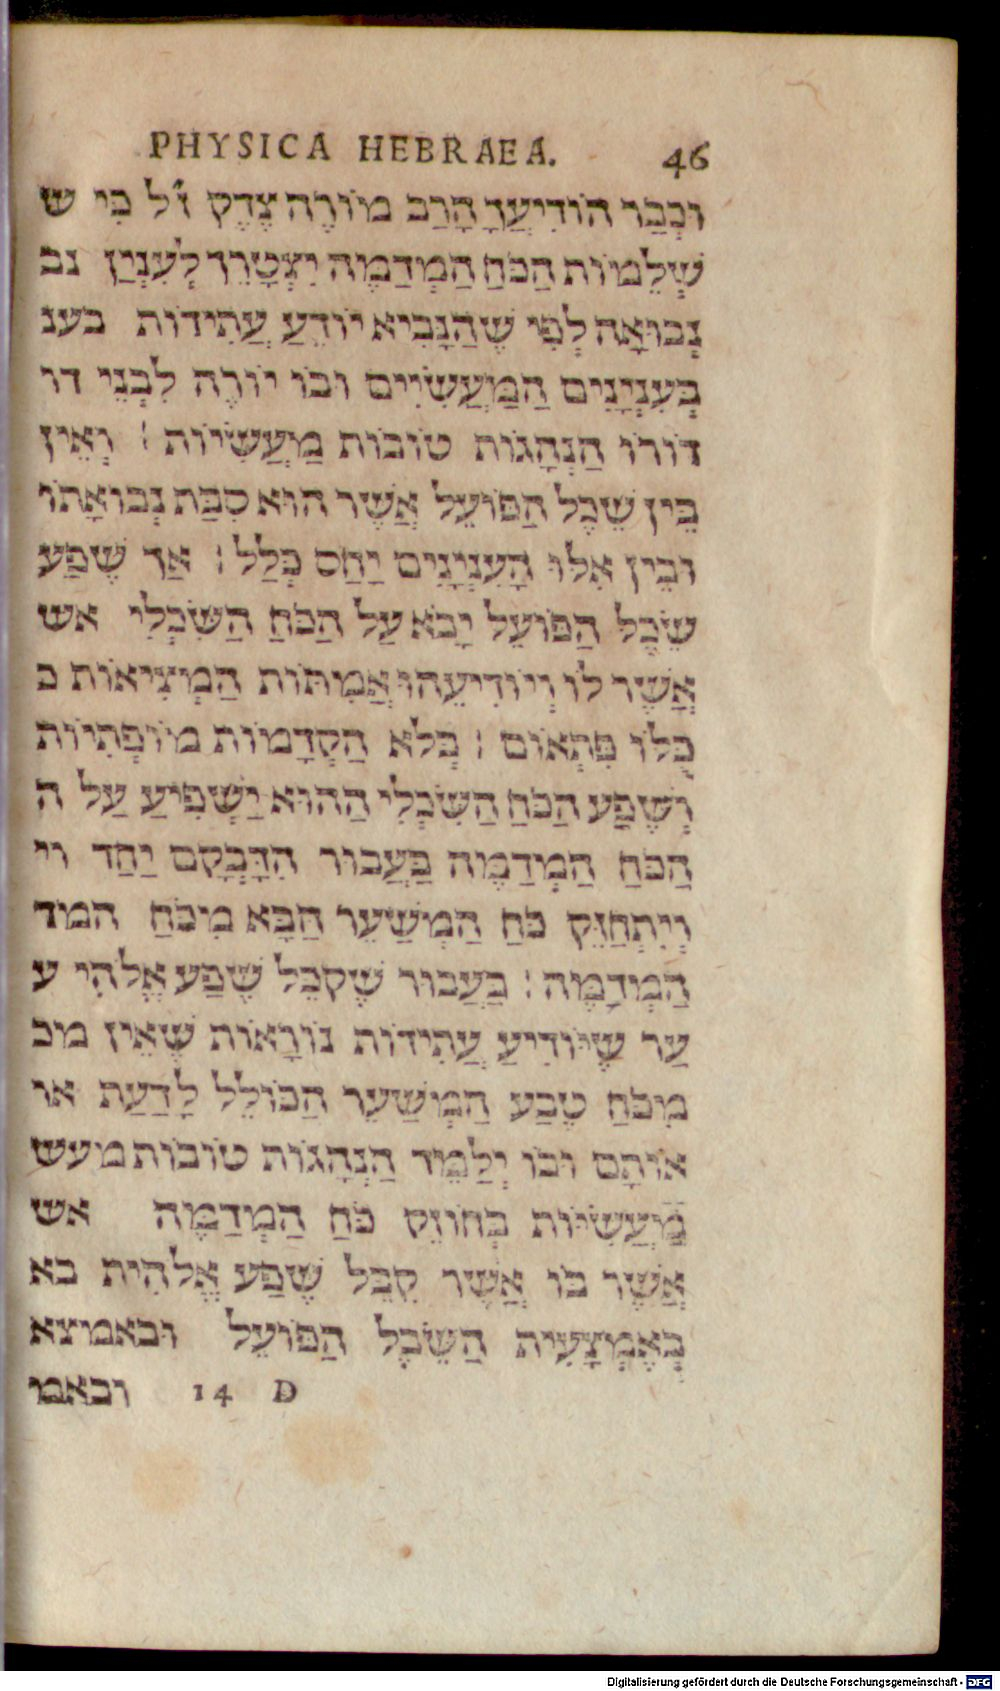 PHYSICA HEBRAEA. 46
וּכְבַר הוֹדִיעֲךָ הָרַב מוֹרֶה צֶדֶק ז״ל כִּי ש
שְׁלֵמוּת הַכֹּחַ הַמְדַמֶּה יִצְטָרֵךְ לְעִנְיַן נב
נְבוּאָה לְפִי שֶׁהַנָּבִיא יוֹדֵעַ עֲתִידוֹת בענ
בְּעִנְיָנִים הַמַּעֲשִׂיִּים וּבוֹ יוֹרֶה לִבְנֵי דו
דוֹרוֹ הַנְהָגוֹת טוֹבוֹת מַעֲשִׂיּוֹת : וְאֵין
בֵּין שֵׂכֶל הַפּוֹעֵל אֲשֶׁר הוּא סִבַּת נְבוּאָתוֹ
וּבֵין אִלּוּ הָעִנְיָנִים יַחַס כְּלַל : אַךְ שֶׁפַע
שֵׂכֶל הַפּוֹעֵל יָבֹא עַל הַכֹּחַ הַשִּׂכְלִי אש
אֲשֶׁר לוֹ וְיוֹדִיעֵהוּ אֲמִתּוֹת הַמְּצִיאוֹת כ
כֻּלּוֹ פִּתְאוֹם : בְּלֹא הַקְדָמוֹת מוֹפְתִיּוֹת
וְשֶׁפַע הַכֹּחַ הַשִּׂכְלִי הַהוּא יַשְׁפִּיעַ עַל ה
הַכֹּחַ הַמְדַמֶּה בַּעֲבוּר הִדָּבְקָם יַחַד וי
וְיִתְחַזֵּק כֹּחַ הַמְשַׁעֵר הַבָּא מִכֹּחַ המד
הַמְדַמֶּה : בַּעֲבוּר שֶׁקִּבֵּל שֶׁפַע אֱלֹהִי ע
עַד שֶׁיּוֹדִיעַ עֲתִידוֹת נוֹרָאוֹת שֶׁאֵין מכ
מִכֹּחַ טֶבַע הַמְשַׁעֵר הַכּוֹלֵל לָדַעַת או
אוֹתָם וּבוֹ יְלַמֵּד הַנְהָגוֹת טוֹבוֹת מעש
מַעֲשִׂיּוֹת בְּחוֹזֶק כֹּחַ הַמְדַמֶּה אש
אֲשֶׁר בּוֹ אֲשֶׁר קִבֵּל שֶׁפַע אֱלֹהִית בא
בְּאֶמְצָעִית הַשֵּׂכֶל הַפּוֹעֵל ובאמצא
ובאמ 14 D
Digitalisierung gefördert durch die Deutsche Forschungsgemeinschaft - DFG